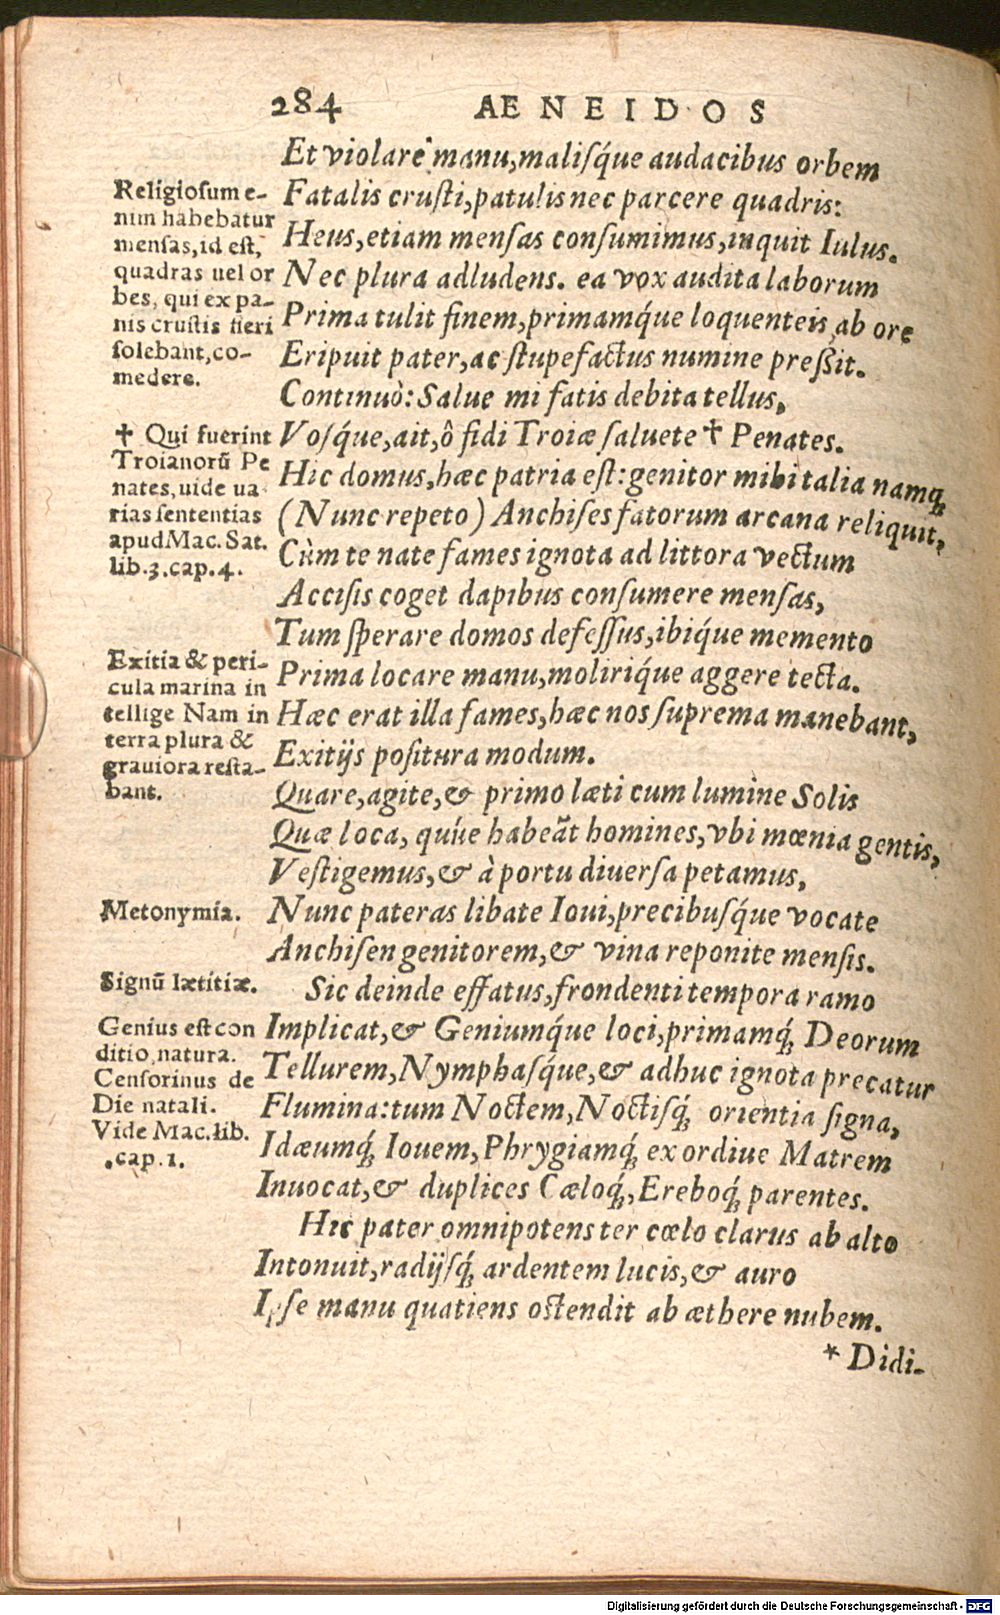 284 AENEIDOS
Et violare manu, malisq́ue audacibus orbem
Fatalis crusti, patulis nec parcere quadris:
Heus, etiam mensas consumimus, inquit Iulus.
Nec plura adludens. ea vox audita laborum
Prima tulit finem, primamq́ue loquenteis ab ore
Eripuit pater, ac stupefactus numine preßit.
Continuò: Salue mi fatis debita tellus,
Vosq́ue, ait, ô fidi Troiæ saluete ✝ Penates.
Hic domus, hæc patria est: genitor mihi talia namq;
(Nunc repeto) Anchises fatorum arcana reliquit,
Cùm te nate fames ignota ad littora vectum
Accisis coget dapibus consumere mensas,
Tum sperare domos defessus, ibiq́ue memento
Prima locare manu, moliriq́ue aggere tecta.
Hæc erat illa fames, hæc nos suprema manebant,
Exitijs positura modum.
Quare, agite, & primo læti cum lumine Solis
Quæ loca, quíue habeāt homines, vbi mœnia gentis,
Vestigemus, & à portu diuersa petamus,
Nunc pateras libate Ioui, precibusq́ue vocate
Anchisen genitorem, & vina reponite mensis.
Sic deinde effatus, frondenti tempora ramo
Implicat, & Geniumq́ue loci, primamq́; Deorum
Tellurem, Nymphasq́ue, & adhuc ignota precatur
Flumina: tum Noctem, Noctisq́; orientia signa,
Idæumq́; Iouem, Phrygiamq́; ex ordiue Matrem
Inuocat, & duplices Cæloq́;, Ereboq́; parentes.
Hic pater omnipotens ter cœlo clarus ab alto
Intonuit, radijsq́; ardentem lucis, & auro
Ipse manu quatiens ostendit ab æthere nubem.
* Didi-
Religiosum e-
nim habebatur
mensas, id est,
quadras uel or
bes, qui ex pa-
nis crustis fieri
solebant, co-
medere.
✝ Qui fuerint
Troianorū Pe
nates, uide ua
rias sententias
apud Mac. Sat.
lib. 3. cap. 4.
Exitia & peri-
cula marina in
tellige Nam in
terra plura &
grauiora resta-
bant.
Metonymía.
Signū lætitiæ.
Genius est con
ditio natura.
Censorinus de
Die natali.
Vide Mac. lib.
. cap. 1.
Digitalisierung gefördert durch die Deutsche Forschungsgemeinschaft - DFG